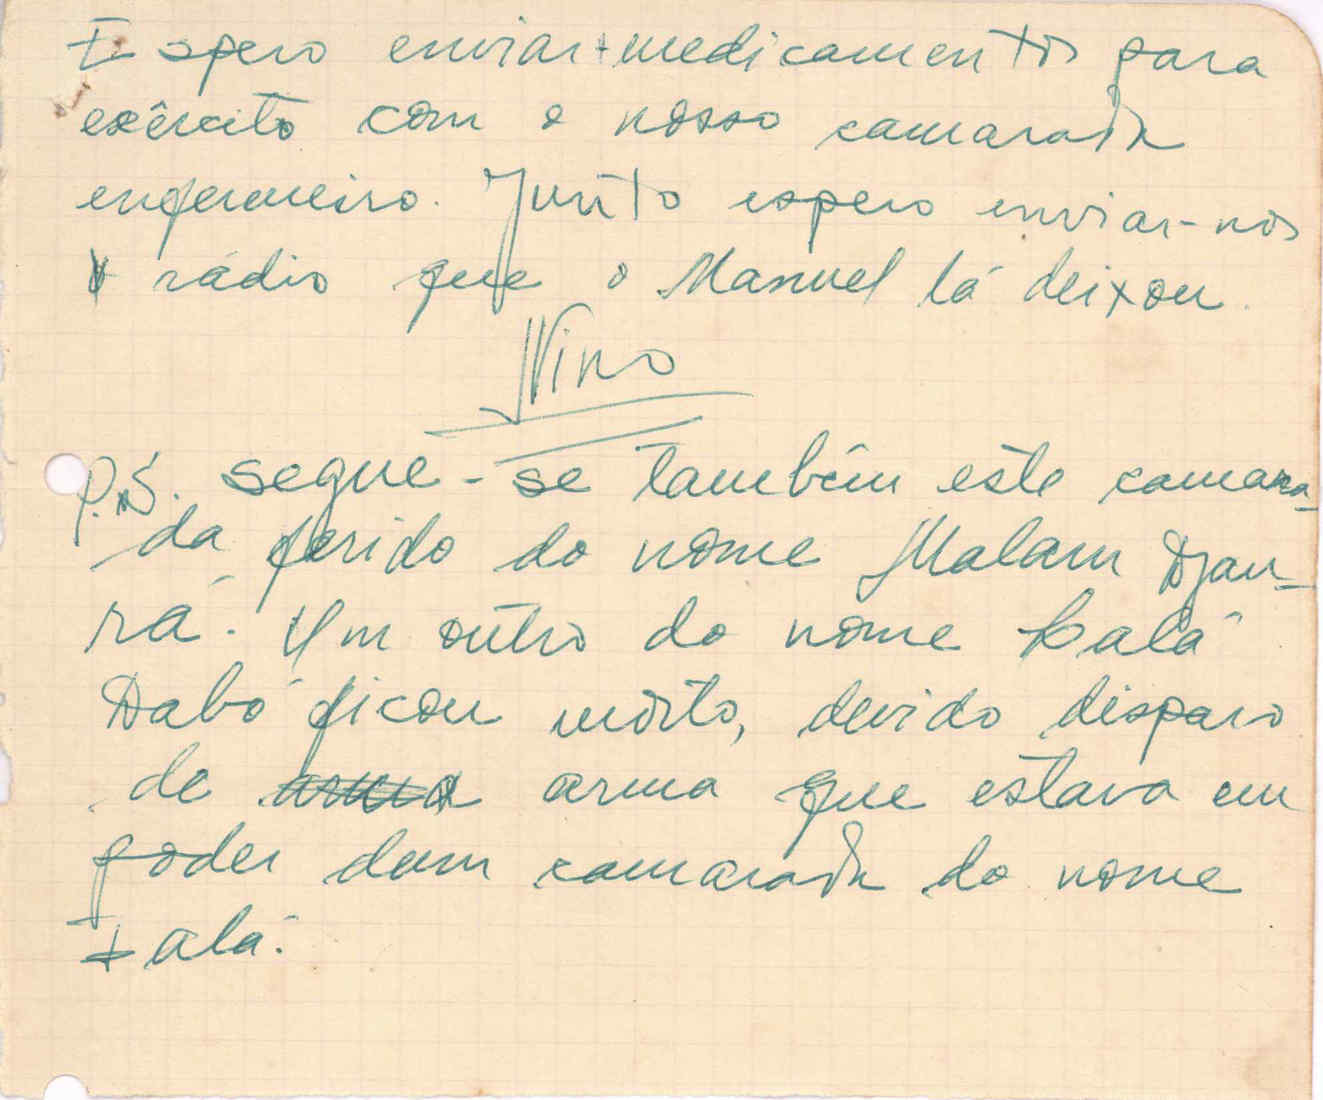 Espero enviar + medicamentos para
exército com o nosso camarada
enfermeiro. Junto espero enviar-nos
o rádio que o Manuel lá deixou.
Nino
P.S. segue-se também este camara-
da ferido do nome Malam Djau-
rá. Um outro do nome Calá
Dabó ficou morto, devido disparo
de arma que estava em
poder dum camarada do nome